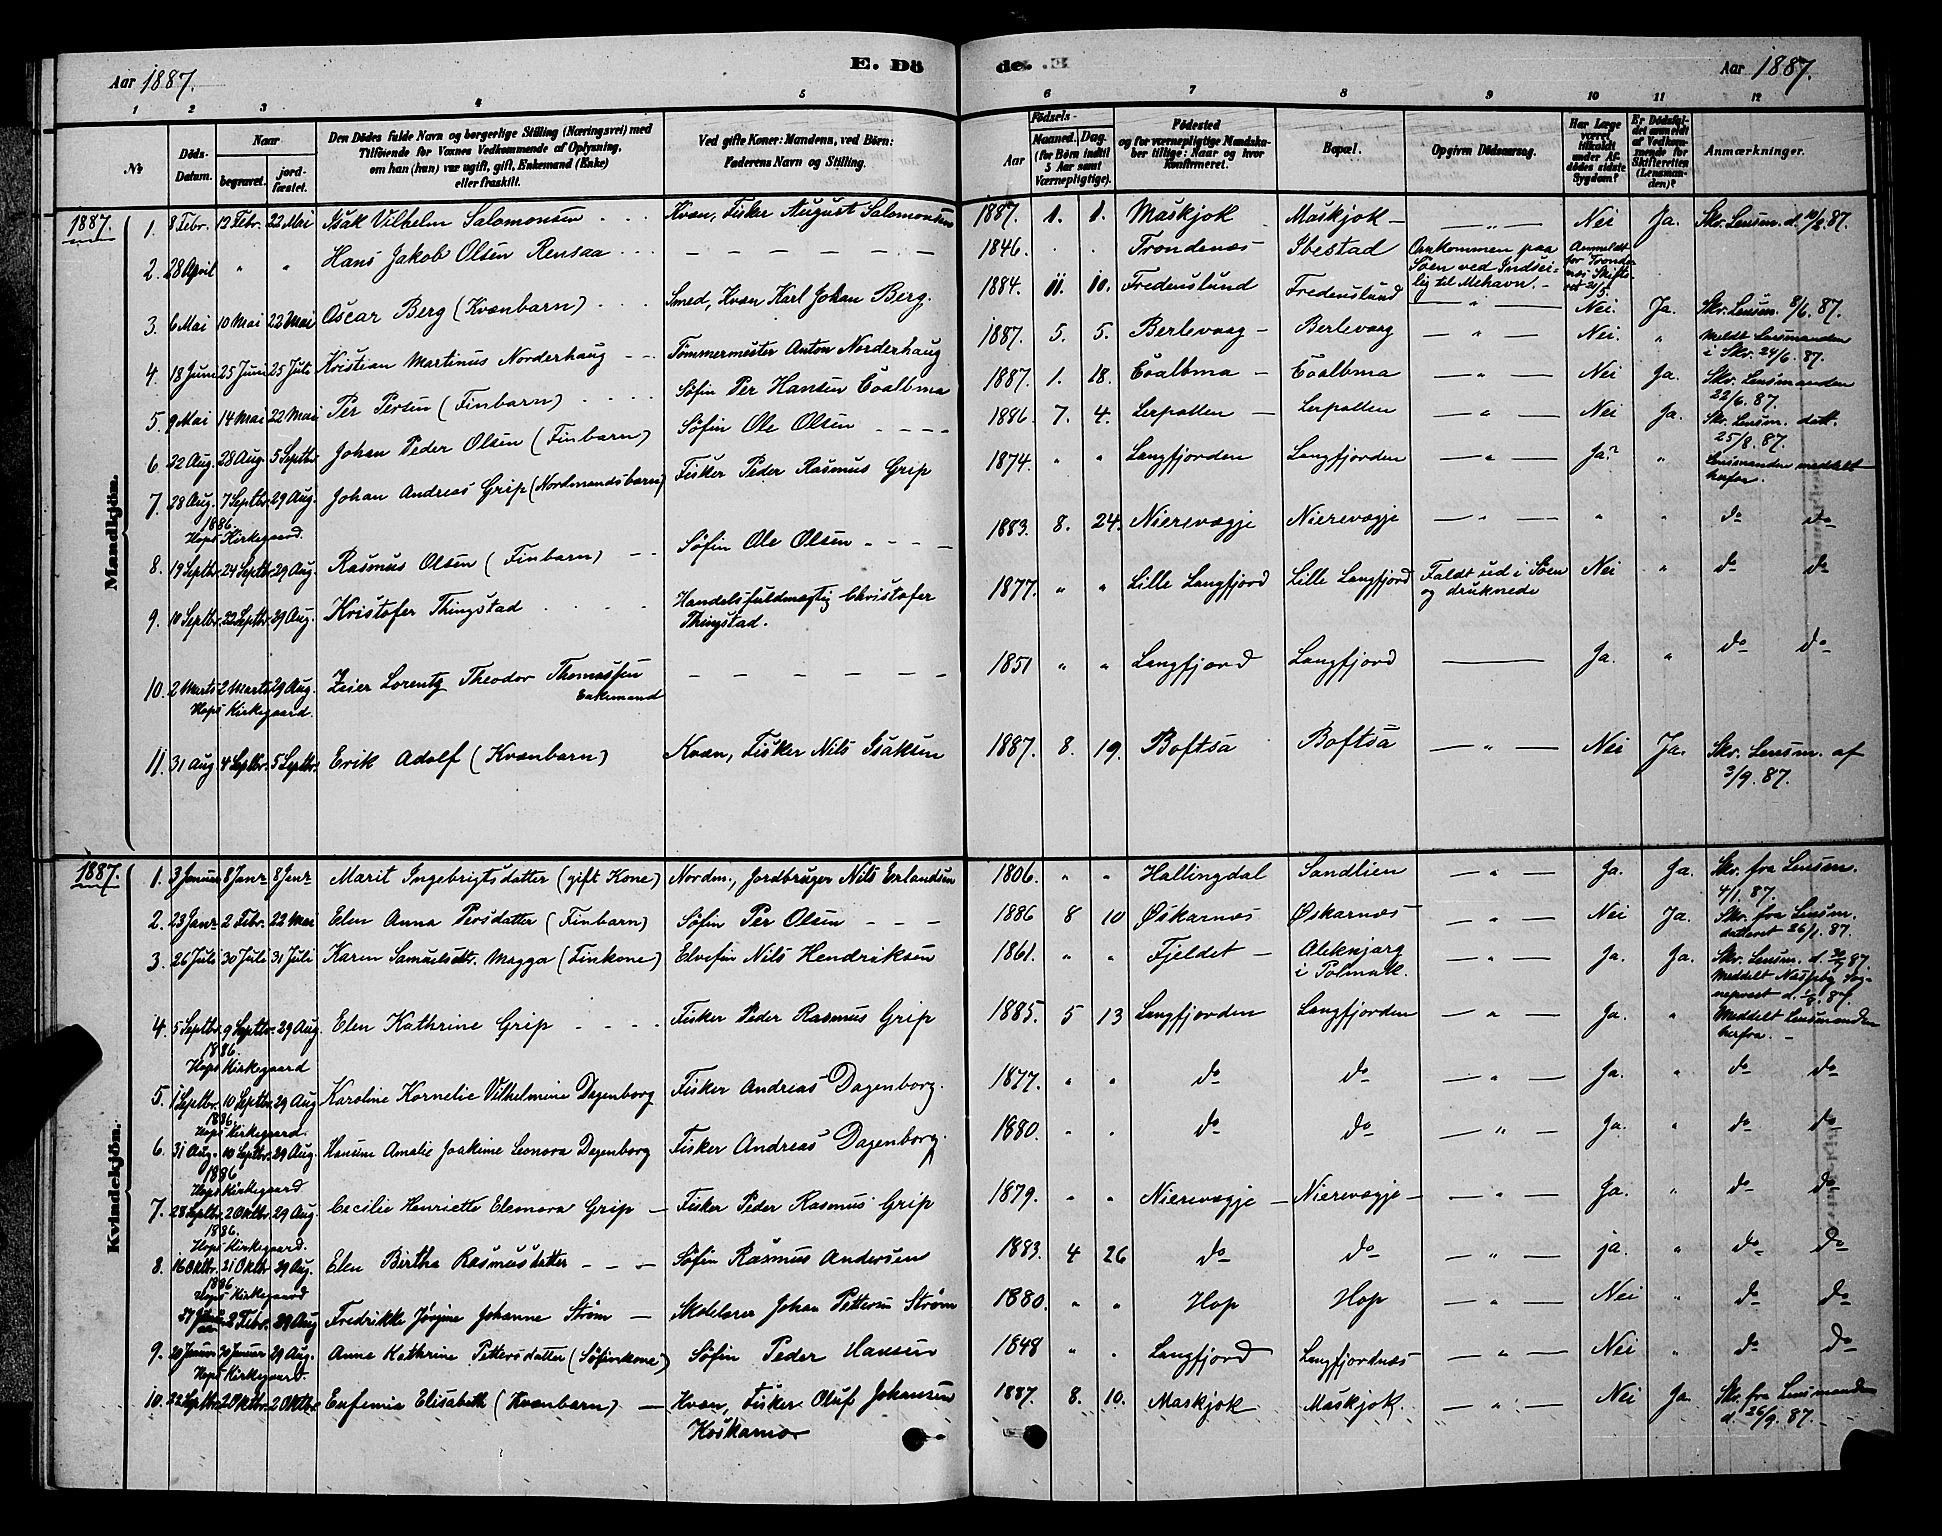 Aar 1887. E. Dö de. E Aar 1887.
1 2 3 4 5 6 7 8 9 10 11 12
No Döds-Datum. Naar begravet. jordfæstet. Den Dödes fulde Navn og borgerlige Stilling (Næringsvei) med Tilföiende for Voxnes Vedkommende af Oplysning, om han (hun) var ugift, gift, Enkemand (Enke) eller fraskilt. Ved gifte Koner: Mandens, ved Börn: Faderens Navn og Stilling. Födsels- Aar Maaned. Dag. (for Börn indtil 5 Aar samt Værnepligtige). Födested og for værnepligtige Mandskaber tillige: Naar og hvor Konfirmeret. Bopæl. Opgiven Dödsaarsag. Har Læge været tilkaldt under Afdödes sidste Sygdom? Er Dödsfaldet anmeldt af Vedkommende for Skifteretten (Lensmanden)? Anmærkninger.
Mandkjön.
1887. 1. 8 Febr. 12 Febr. 22 Mai Isak Vilhelm Salomonsen Kvæn, Fisker August Salomonsen 1887. 1. 1. Maskjok Maskjok — „ — Nei Ja. Skr. Lensm. d. 10/2 87.
2. 28 April „ „ Hans Jakob Olsen Rensaa — — — — — 1846. Trondenæs Ibestad Omkommen paa Söen ved Indseiling til Mehavn. Anmeldt for Trondenæs Skifteret 21/5.
3. 6 Mai 10 Mai 22 Mai Oscar Berg (Kvænbarn) Smed, Kvæn Karl Johan Berg. 1884. 11. 10. Fredenslund Fredenslund — „ — Nei. Ja. Skr. Lensm. 8/6. 87.
4. 18 Juni 25 Juni 25 Juli Kristian Martinus Norderhaug Tömmermester Anton Norderhaug 1887. 5. 5. Berlevaag Berlevaag — „ — Nei. „ Meldt Lensmanden i Skr. 24/6. 87.
5. 9 Mai 14 Mai 22 Mai Per Persen (Finbarn) Söfin Per Hansen Coalbma 1887. 1. 18. Coalbma Coalbma — „ — Nei Ja. Skr. Lensmanden 22/6. 87.
6. 22 Aug. 28 Aug. 5 Septbr. Johan Peder Olsen (Finbarn) Söfin Ole Olsen 1886. 7. 4. Lerpollen Lerpollen — „ — Nei Ja. Skr. Lensm. datt. 25/8. 87.
7. 28 Aug. 7 Septbr. 29 Aug. Johan Andreas Grip (Nordmandsbarn) Fisker Peder Rasmus Grip 1874. „ „ Langfjorden Langfjorden — „ — Ja? „ Lensmanden meddelt herfra.
1886. Hops Kirkegaard.
8. 19 Septbr. 24 Septbr. 29 Aug. Rasmus Olsen (Finbarn) Söfin Ole Olsen 1883. 8. 24. Nierevægje Nierevægje — „ — „ „ do do
9. 10 Septbr. 22 Septbr. 29 Aug. Kristofer Thingstad Handelsfuldmægtig Christofer Thingstad. 1877. „ „ Lille Langfjord Lille Langfjord Faldt ud i Söen og druknede Nei „ do do
10. 2 Marts 2 Marts 29 Aug. Zeier Lorentz Theodor Thomassen Enkemand — — — — — 1851 „ „ Langfjord Langfjord — Ja. „ do do
Hops Kirkegaard.
11. 31 Aug. 4 Septbr. 5 Septbr. Erik Adolf (Kvænbarn) Kvæn, Fisker Nils Isaksen 1887. 8. 19. Boftsa Boftsa — „ — Nei Ja. Skr. Lensm. af 3/9. 87.
Kvindekjön.
1887. 1. 3 Januar 8 Janr 8 Janr Marit Ingebrigtsdatter (gift Kone) Nordm., Jordbruger Nils Erlandsen 1806. „ „ Hallingdal Sandlien — „ — Ja. Ja. Skr. fra Lensm. 4/1. 87.
2. 23 Janr 2 Febr. 22 Mai Elen Anna Persdatter (Finbarn) Söfin Per Olsen 1886 8 10 Øskarnæs Øskarnæs — „ — Nei Ja. Skr. fra Lensm. datteret 26/1. 87.
3. 26 Juli 30 Juli 31 Juli Karen Samuelsdtr. Magga (Finkone) Elvefin Nils Hendriksen 1861. „ „ Fjeldet — Aleknjarg i Polmak. — „ — Ja. Ja. Skr. Lensm. d. 30/7 87. Meddelt Næsseby Sogneprest d. 1/8. 87.
4. 5 Septbr. 9 Septbr. 29 Aug Elen Kathrine Grip Fisker Peder Rasmus Grip 1885. 5 13 Langfjorden Langfjorden — „ — Ja. „ Meddelt Lensmanden herfra.
1886. Hops Kirkegaard
5. 1 Septbr. 10 Septbr. 29 Aug Karoline Kornelie Vilhelmine Dagenborg Fisker Andreas Dagenborg. 1877. „ „ do do — „ — Ja. „ do do
1886. Hops Kirkegaard.
6. 31 Aug. 10 Septbr. 29 Aug. Hansine Amalie Joakime Leonora Dagenborg Fisker Andreas Dagenborg. 1880. „ „ do do — „ — Ja. „ do do
1886 Hops Kirkegaard
7. 28 Septbr. 2 Oktbr. 29 Aug. Cecilie Henriette Eleonora Grip Fisker Peder Rasmus Grip 1879. „ „ Nierevægje — Nierevægje — „ — Ja. „ do do
1886. Hops Kirkegaard.
8. 16 Oktbr. 21 Oktbr 29 Aug. Elen Birtha Rasmusdatter Söfin Rasmus Andersen 1883. 4 26 do do — „ — ja. „ do do
1886 Hops Kirkegaard
27 Januar 2 Febr. 29 Aug Fredrikke Jörgine Johanne Ström — Skolelærer Johan Pettersen Ström 1880. „ „ Hop Hop — „ — Nei „ do do
9. 20 Januar 30 Januar 29 Aug. Anna Kathrine Pettersdatter (Söfinkone) Söfin Peder Hansen 1848 „ „ Langfjord Langfjordnæs — „ — Nei „ do do
Hops Kirkegaard.
10. 22 Septbr 2 Oktbr. 2 Oktbr Eufemia Elisabeth (Kvænbarn) — Kvæn, Fisker Oluf Johansen Koskamo 1887. 8. 10. Maskjok Maskjok. — „ — Nei Ja. Skr. fra Lensmanden d. 26/9. 87.